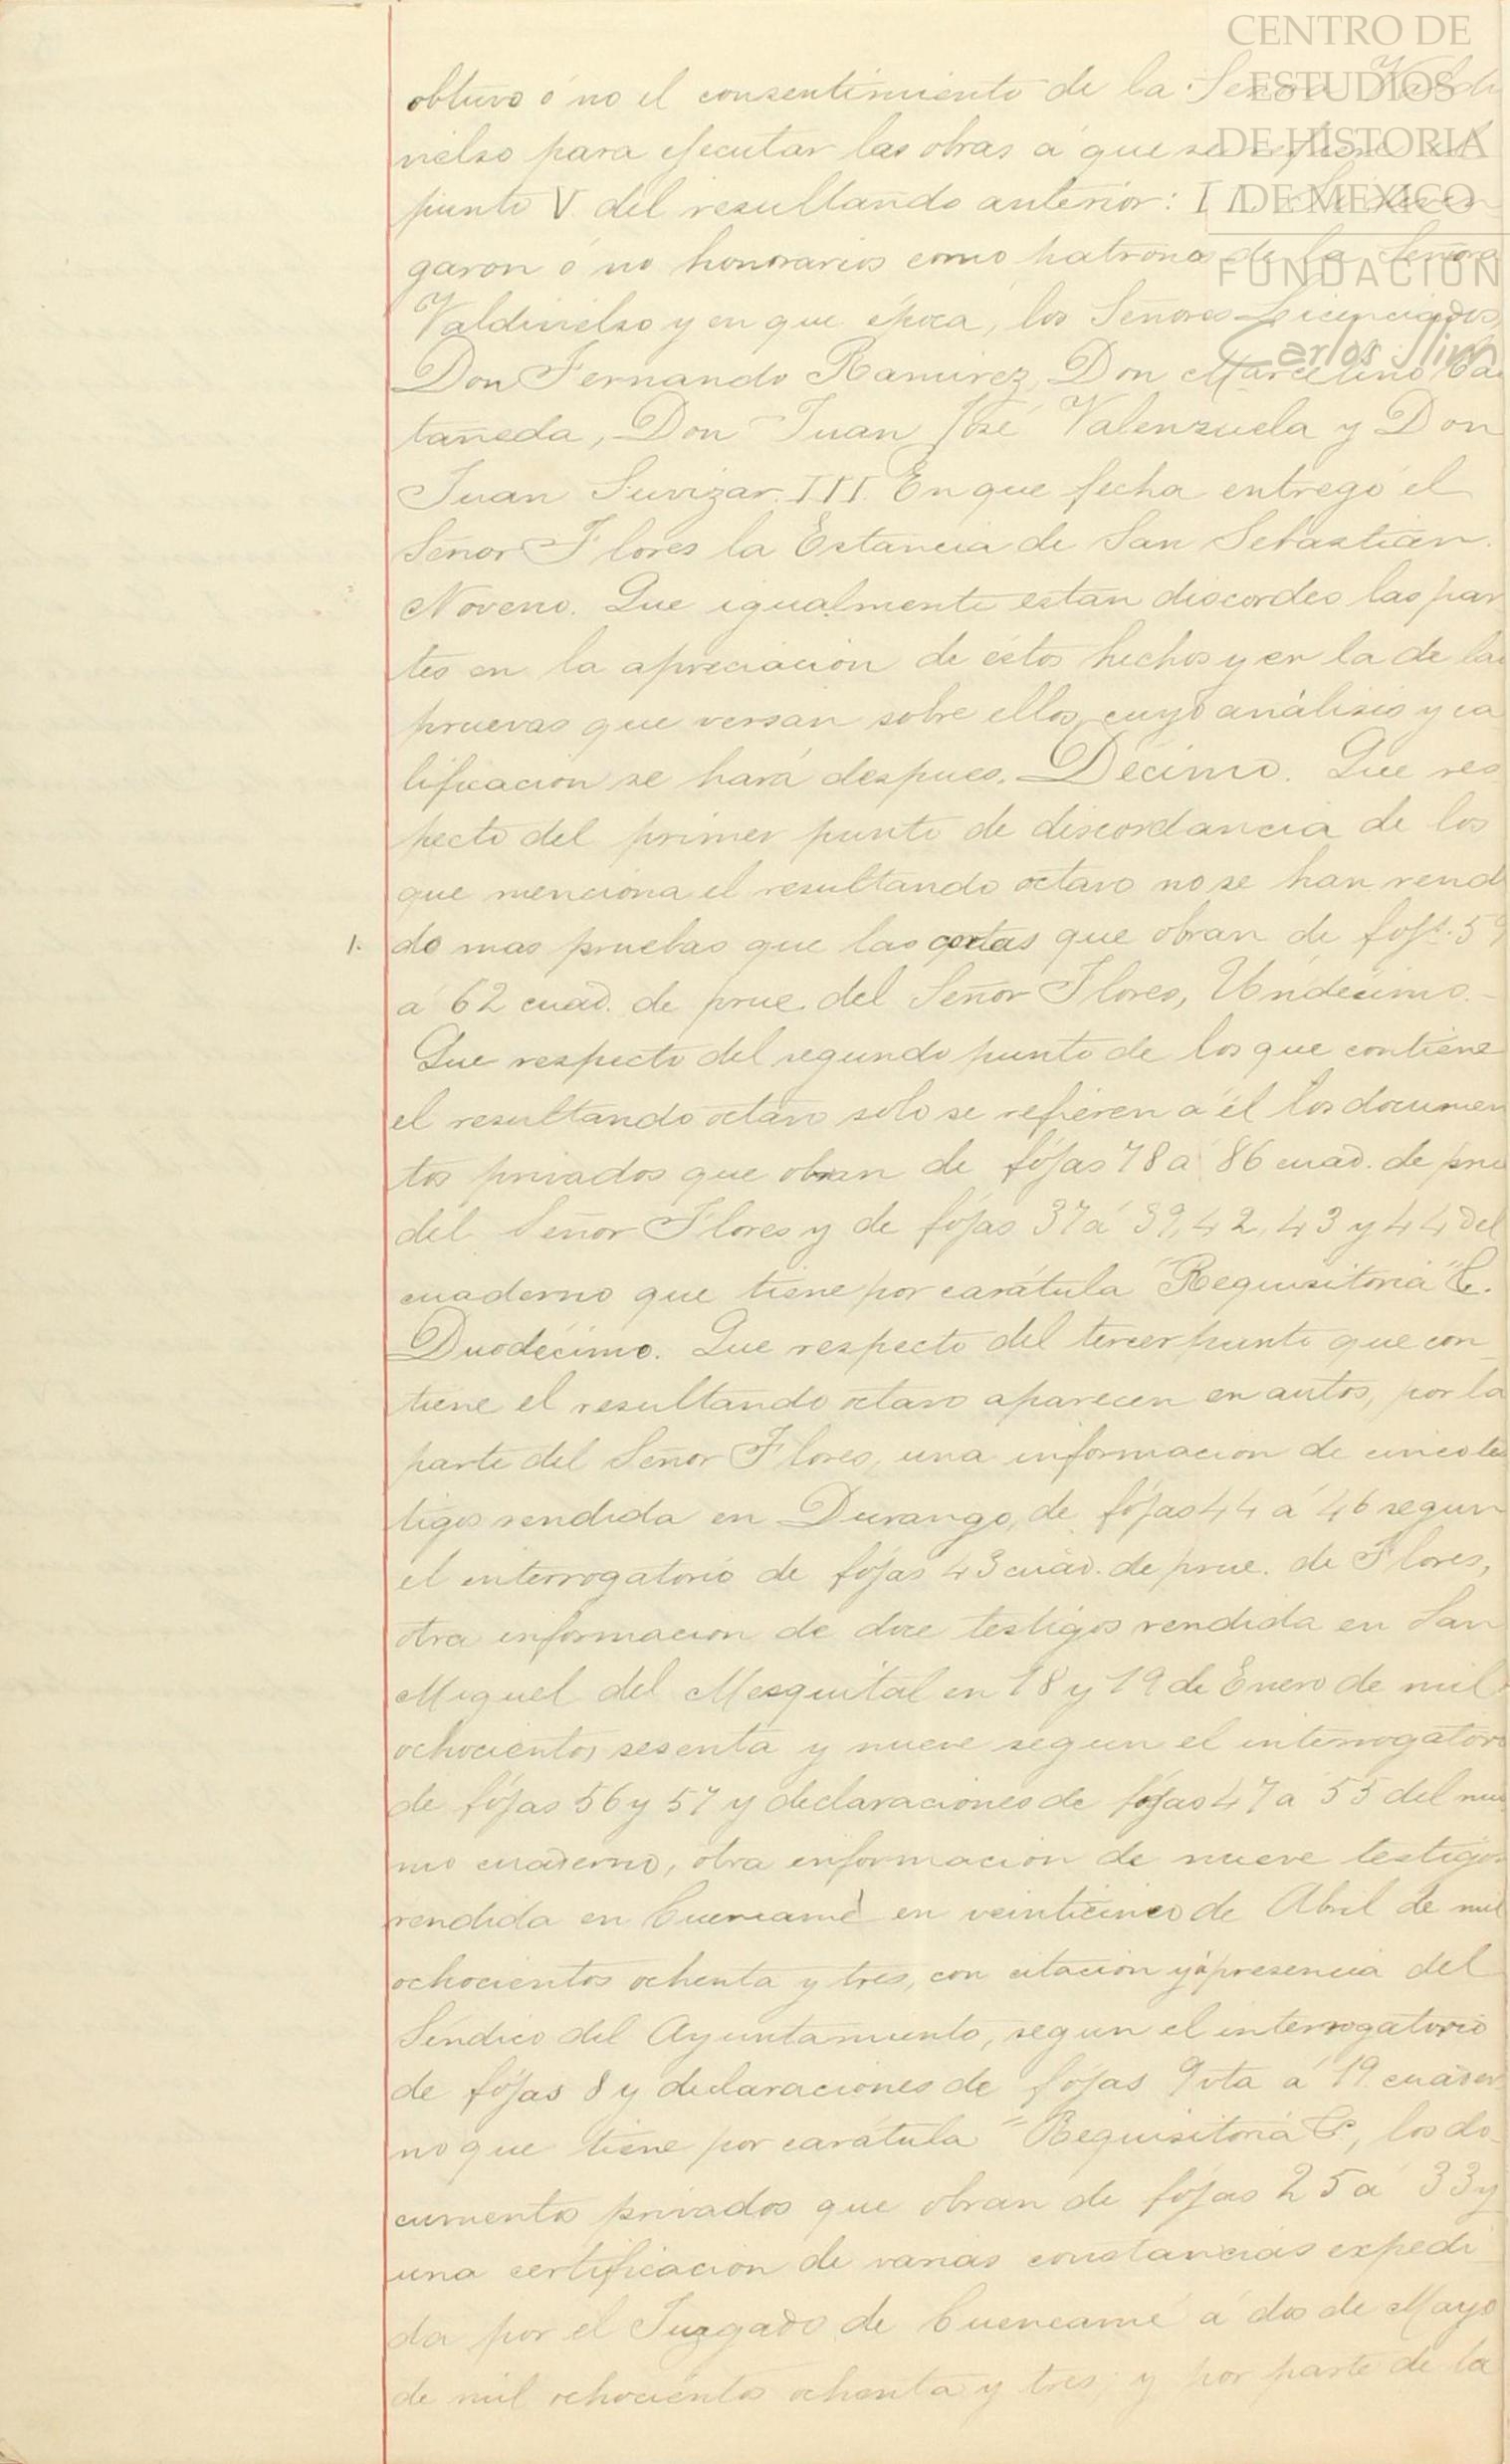 CENTRO DE
ESTUDIOS
DE HISTORIA
DE MEXICO
FUNDACIÓN
Carlos Slim
obtuvo ó no el consentimiento de la Señora Valdi
vielso para ejecutar las obras á que se refiere el
punto V. del resultando anterior: II. Si deven
garon ó no honorarios como patronos de la Señora
Valdivielso y en que época, los Señores Licenciados,
Don Fernando Ramirez, Don Marcelino Cas
tañeda, Don Juan José Valenzuela y Don
Juan Suvizar. III. En que fecha entregó el
Señor Flores la Estancia de San Sebastián.
Noveno. Que igualmente estan discordes las par
tes en la apreciación de éstos hechos y en la de las
pruevas que versan sobre ellos, cuyo análisis y ca
lificacion se hará despues. Décimo. Que res
pecto del primer punto de discordancia de los
que menciona el resultando octavo no se han rendi
1. do mas pruebas que las cartas que obran de fojs. 59
á 62 cuad. de prue. del Señor Flores, Undécimo.-
Que respecto del segundo punto de los que contiene
el resultando octavo solo se refieren á él los documen
tos privados que obran de fójas 78 á 86 cuad. de prue
del Señor Flores y de fójas 37 á 39, 42, 43 y 44 del
cuaderno que tiene por carátula "Requisitoria C.
Duodécimo. Que respecto del tercer punto que con
tiene el resultando octavo aparecen en autos, por la
parte del Señor Flores, una informacion de cinco tes
tigos rendida en Durango, de fójas 44 á 46 segun
el interrogatorio de fójas 43 cuad. de prue. de Flores,
otra informacion de doce testigos rendida en San
Miguel del Mesquital en 18 y 19 de Enero de mil
ochocientos sesenta y nueve segun el interrogatorio
de fójas 56 y 57 y declaraciones de fójas 47 á 55 del mis
mo cuaderno, otra informacion de nueve testigos
rendida en Cuencamé en veinticinco de Abril de mil
ochocientos ochenta y tres, con citacion y á presencia del
Síndico del Ayuntamiento, segun el interrogatorio
de fójas 8 y declaraciones de fójas 9 vta á 19 cuader
no que tiene por carátula "Requisitoria C", los do-
cumentos privados que obran de fójas 25 á 33 y
una certificacion de varias constancias expedi
da por el Juzgado de Cuencamé á dos de Mayo
de mil ochocientos ochenta y tres; y por parte de la